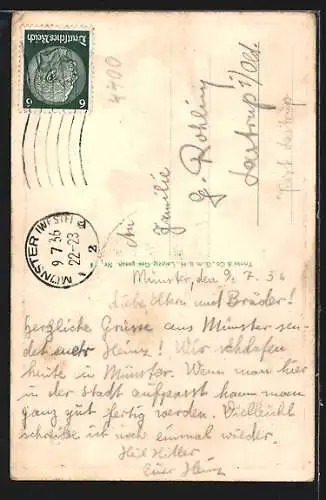 Deutsches Reich
6 6
4400
MÜNSTER (WESTF) 2
9.7.36
22-23
An
Familie
G. Rohling
Lastrup i/Old.
Trinks & Co., G.m.b.H., Leipzig
Münster, den 9.7.36
Liebe Eltern und Brüder!
herzliche Grüsse aus Münster sen-
det euch Heinz! Wir schlafen
heute in Münster. Wenn man hier
in der Stadt aufpasst kann man
ganz gut fertig werden. Vielleicht
schreibe ich noch einmal wieder.
Heil Hitler
Euer Heinz